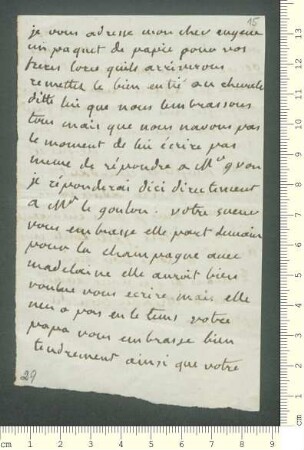 15
je vous adresse mon cher eugene
un paquet de papié pour vos
freres lorsquils arriverons
remettes le bien entié au chevalié
ditte lui que nous lembrassons
tous mais que nous navons pas
le moment de lui écrire pas
meme de répondre a Mr
je réponderai dici directement
a Mr le goulon. votre soeur
vous embrasse elle part demain
pour la champagne avec
madelaine elle auroit bien
voulue vous ecrire mais elle
nen a pas eu le tems votre
papa vous embrasse bien
tendrement ainsi que votre
29